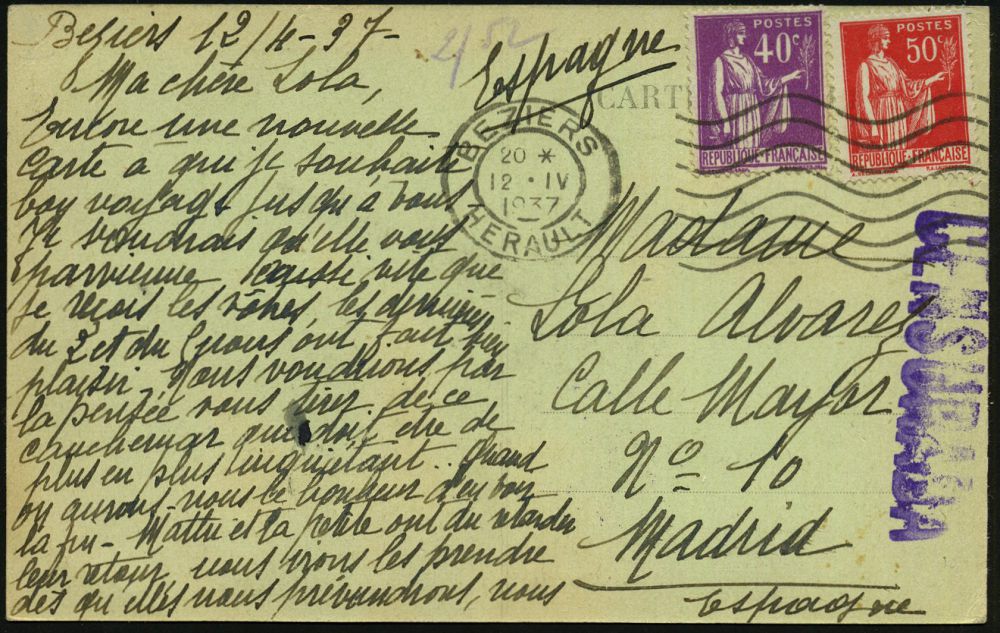 Beziers 12/4-37-
2/52
Ma chère Lola,
Encore une nouvelle
carte à qui je souhaite
bon voyage jusqu'à vous.
Je voudrais qu'elle vous
parvienne aussi vite que
je reçois les vôtres, les dernières
du 2 et du 5 nous ont fait bien
plaisir. Nous voudrions par
la pensée vous tirer de ce
cauchemar qui doit être de
plus en plus inquiétant.. Quand
aurons-nous le bonheur d'en voir
la fin - et la petite ont du retarder
leur retour, nous irons les prendre
dès qu'elles nous prévandront, nous
Espagne
CART
BEZIERS
20 *
12 · IV
1937
HERAULT
POSTES
40c
REPUBLIQUE FRANÇAISE
POSTES
50c
REPUBLIQUE FRANÇAISE
Madame
Lola Alvarez
Calle Mayor
No 10
Madrid
Espagne
CENSURADA